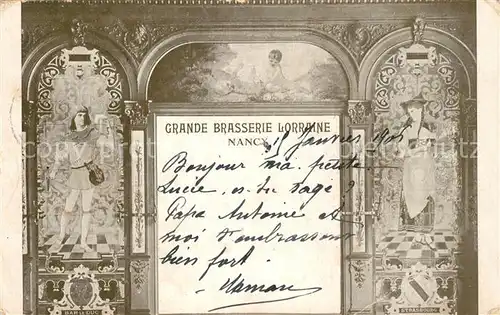 GRANDE BRASSERIE LORRAINE
NANCY
Janvier
Bonjour ma petite
Lucie, es-tu sage ?
Papa Antoine et
moi t'embrassons
bien fort.
Maman
BAR LE DUC
STRASBOURG